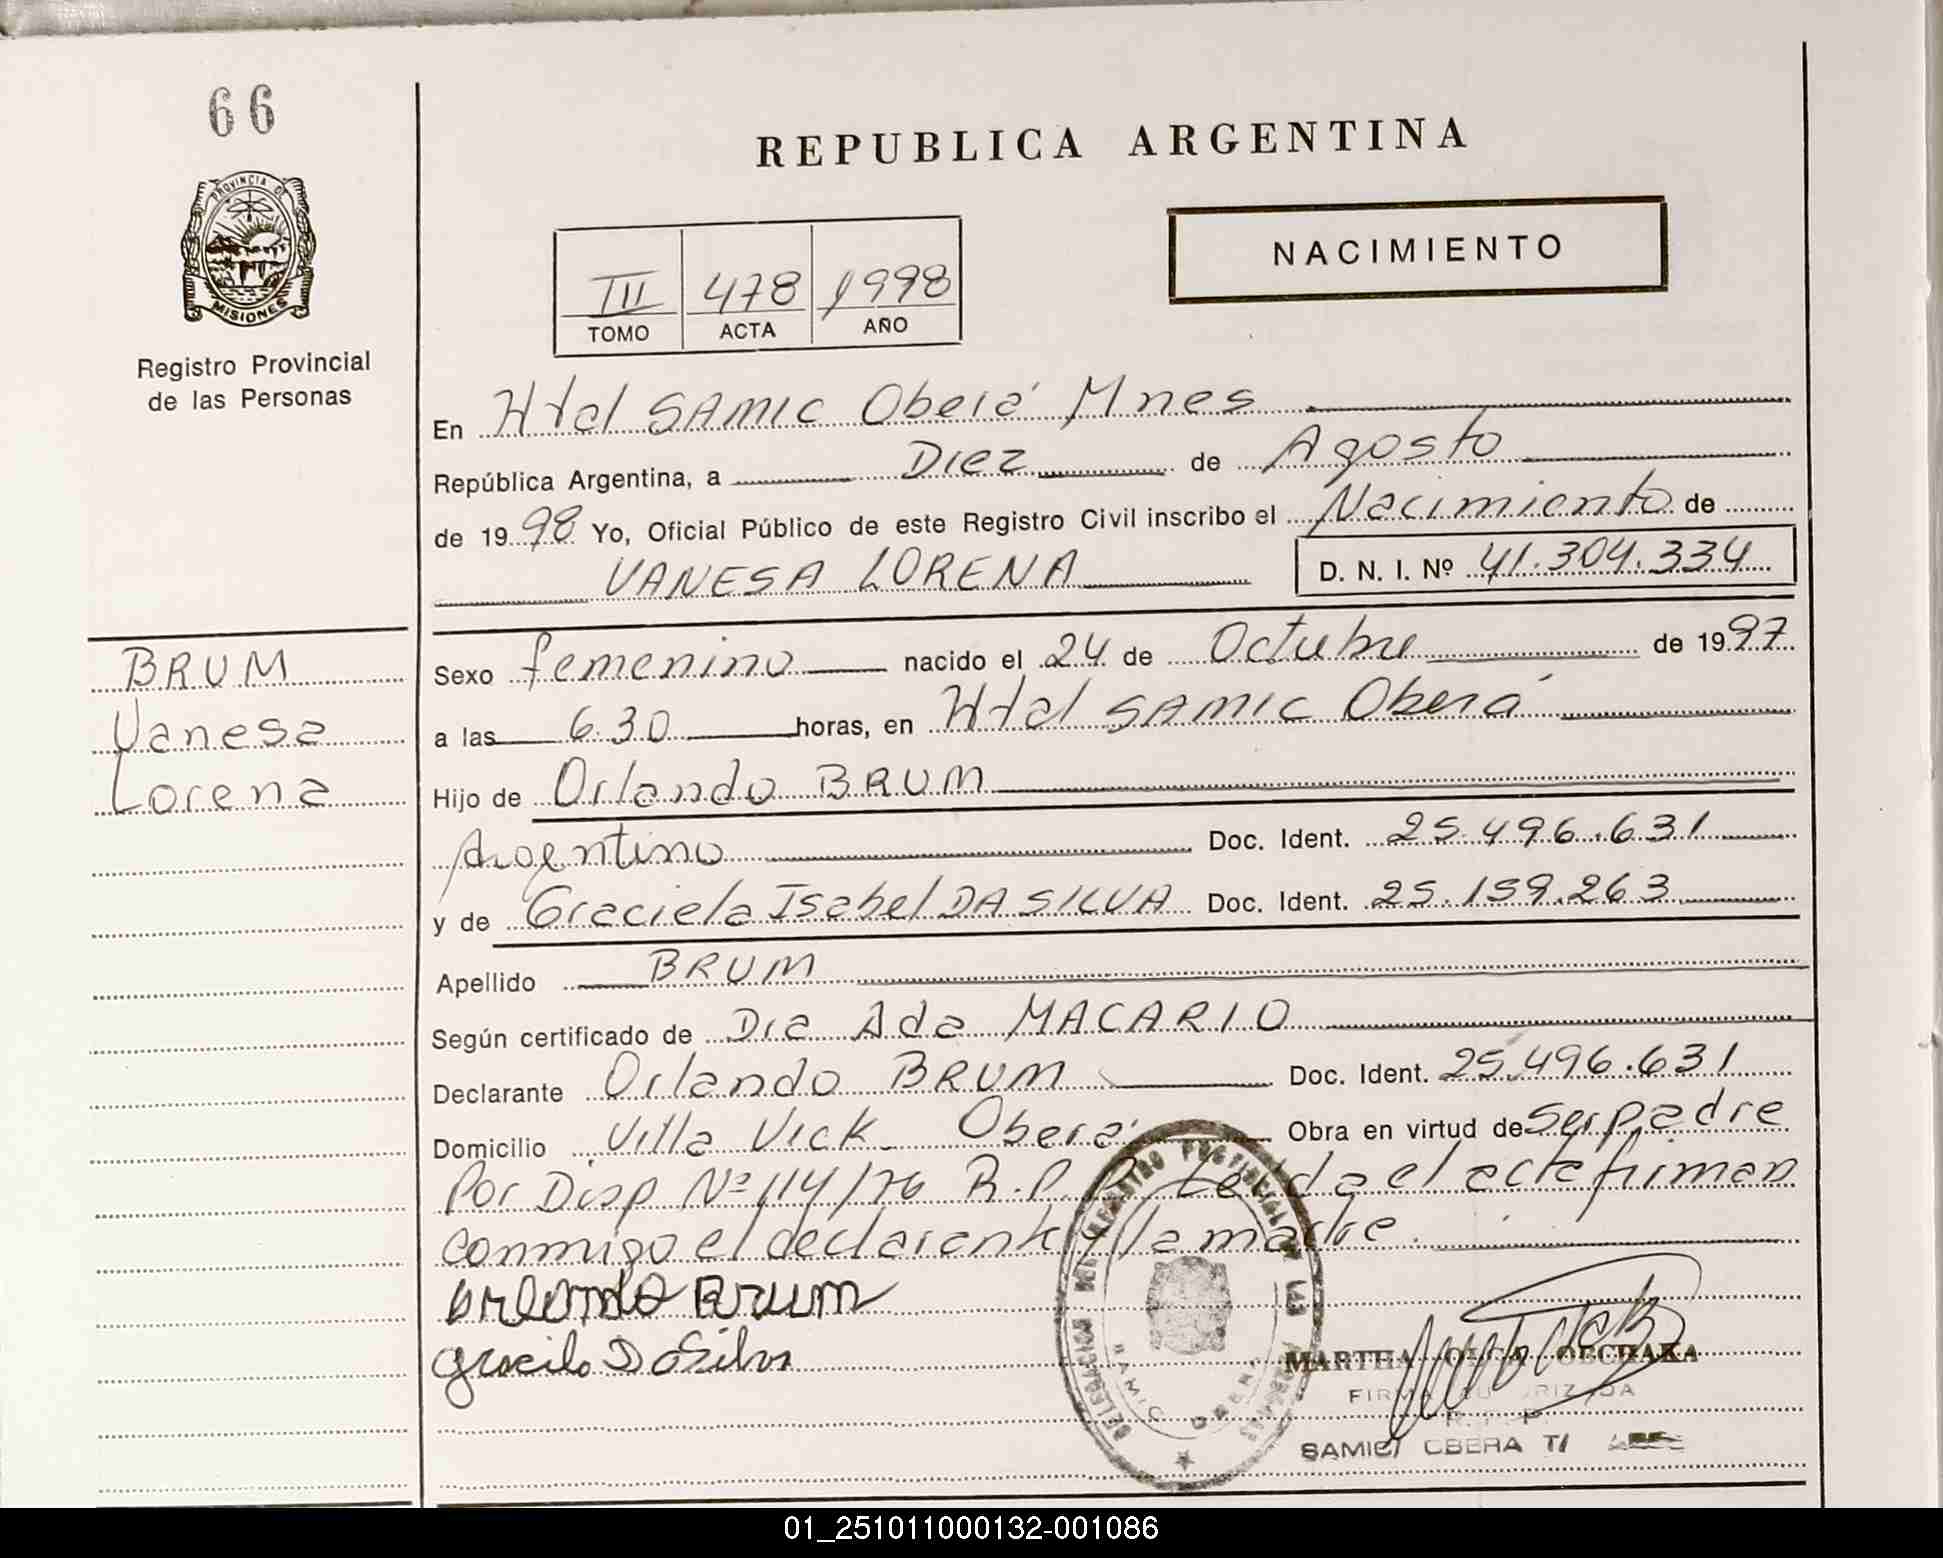 66
REPUBLICA ARGENTINA
PROVINCIA DE
MISIONES
NACIMIENTO
III 478 1998
TOMO ACTA AÑO
Registro Provincial
de las Personas
En Htal SAMIC Oberá Mnes
República Argentina, a Diez de Agosto
de 1998 Yo, Oficial Público de este Registro Civil inscribo el Nacimiento de
VANESA LORENA D. N. I. Nº 41.304.334
BRUM
Vanesa
Lorena
Sexo femenino nacido el 24 de Octubre de 1997
a las 6.30 horas, en Htal SAMIC Oberá
Hijo de Orlando BRUM
Argentino Doc. Ident. 25.496.631
y de Graciela Isabel DA SILVA Doc. Ident. 25.159.263
Apellido BRUM
Según certificado de Dra Ada MACARIO
Declarante Orlando BRUM Doc. Ident. 25.496.631
Domicilio Villa Vick Oberá Obra en virtud de ser padre
Por Disp Nº 114/76 R.P.P. Leída el acta firman
conmigo el declarante y la madre.
orlando Brum
Da Silva
DELEGACION DEL REGISTRO PROVINCIAL DE LAS PERSONAS
SAMIC OBERA
MARTHA OLGA OBCHAKA
FIRMA AUTORIZADA
R. P. P.
SAMIC OBERA
01_251011000132-001086